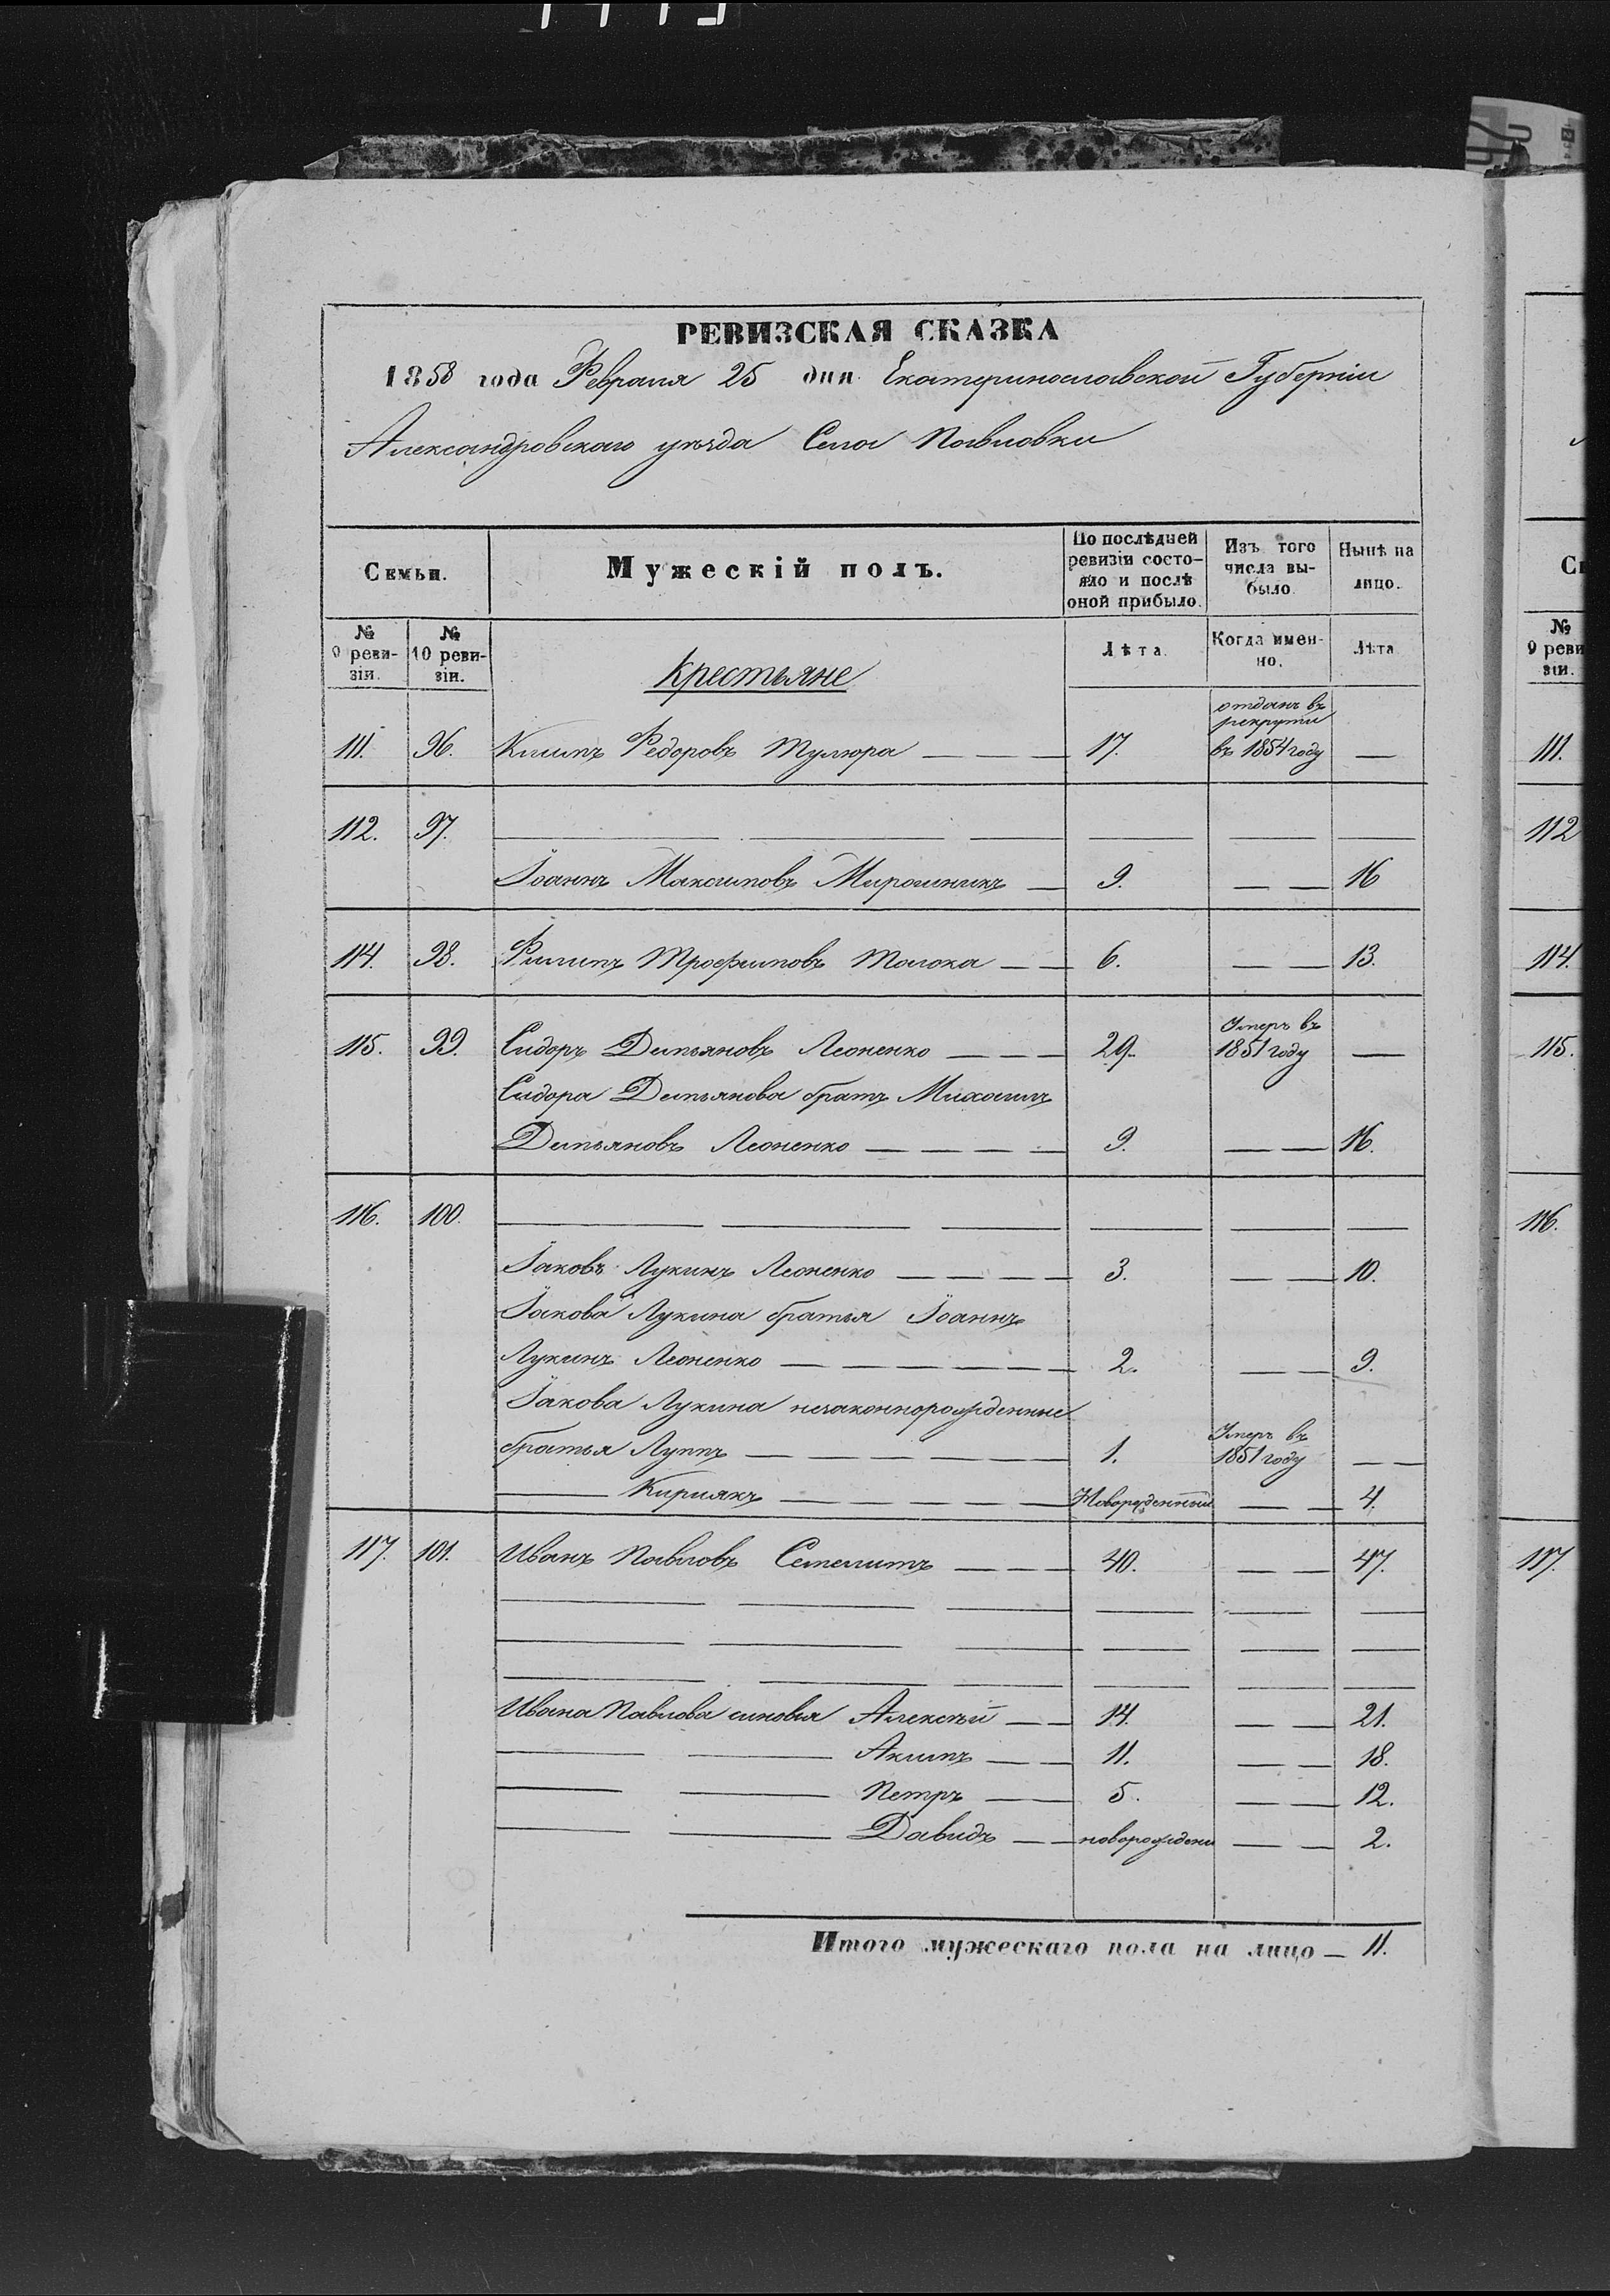 РЕВИЗСКАЯ СКАЗКА
1858 года Февраля 25 дня Екатеринославской Губерніи
Александровскаго уѣзда Села Павловки
Семьи. Мужескій полъ. По послѣдней ревизіи состояло и послѣ оной прибыло. Изъ того числа выбыло. Нынѣ на лицо.
№ 9 ревизіи. № 10 ревизіи. Лѣта. Когда именно. Лѣта
Крестьяне
отданъ въ рекруты
111. 96. Филипъ Федоровъ 17. въ 1854 году —
112. 97. — — — — — —
Іоаннъ Максимовъ Мирошникъ — 9. — — 16
114. 98. Филипъ Трофимовъ Толока — — 6. — — 13.
Умеръ въ
115. 99. Сидоръ Демьяновъ Леоненко — — — 29. 1851 году —
Сидора Демьянова братъ Михаилъ
Демьяновъ Леоненко — — — — 9. — — 16.
116. 100. — — — — — —
Іаковъ Лукинъ Леоненко — — — — 3. — — 10.
Іакова Лукина братья Іоаннъ
Лукинъ Леоненко — — — — — — 2. — — 9.
Іакова Лукина незаконнорожденные
Умеръ въ
братья Луппъ — — — — — — 1. 1851 году — —
— Кириякъ — — — — — Новорожденный — — 4.
117. 101. Иванъ Павловъ — — — 40. — — 47.
— — — — — —
— — — — — —
— — — — — —
Ивана Павлова сыновья Алексѣй — — 14. — — 21.
— — Акимъ — — 11. — — 18.
— — Петръ — — 5. — — 12.
— — Давидъ — — новорожден — — 2.
Итого мужескаго пола на лицо — 11.
№ 9 реви зіи.
111.
112
114.
115.
116.
117.